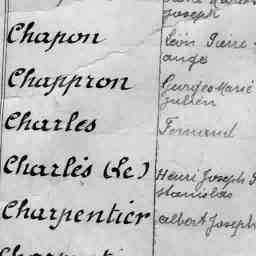 Joseph
Chapon Léon Pierre
ange
Chappron Georges Marie
Julien
Charles Fernand
Charlés (Le) Henri Joseph S
Stanislas
Charpentier Albert Joseph